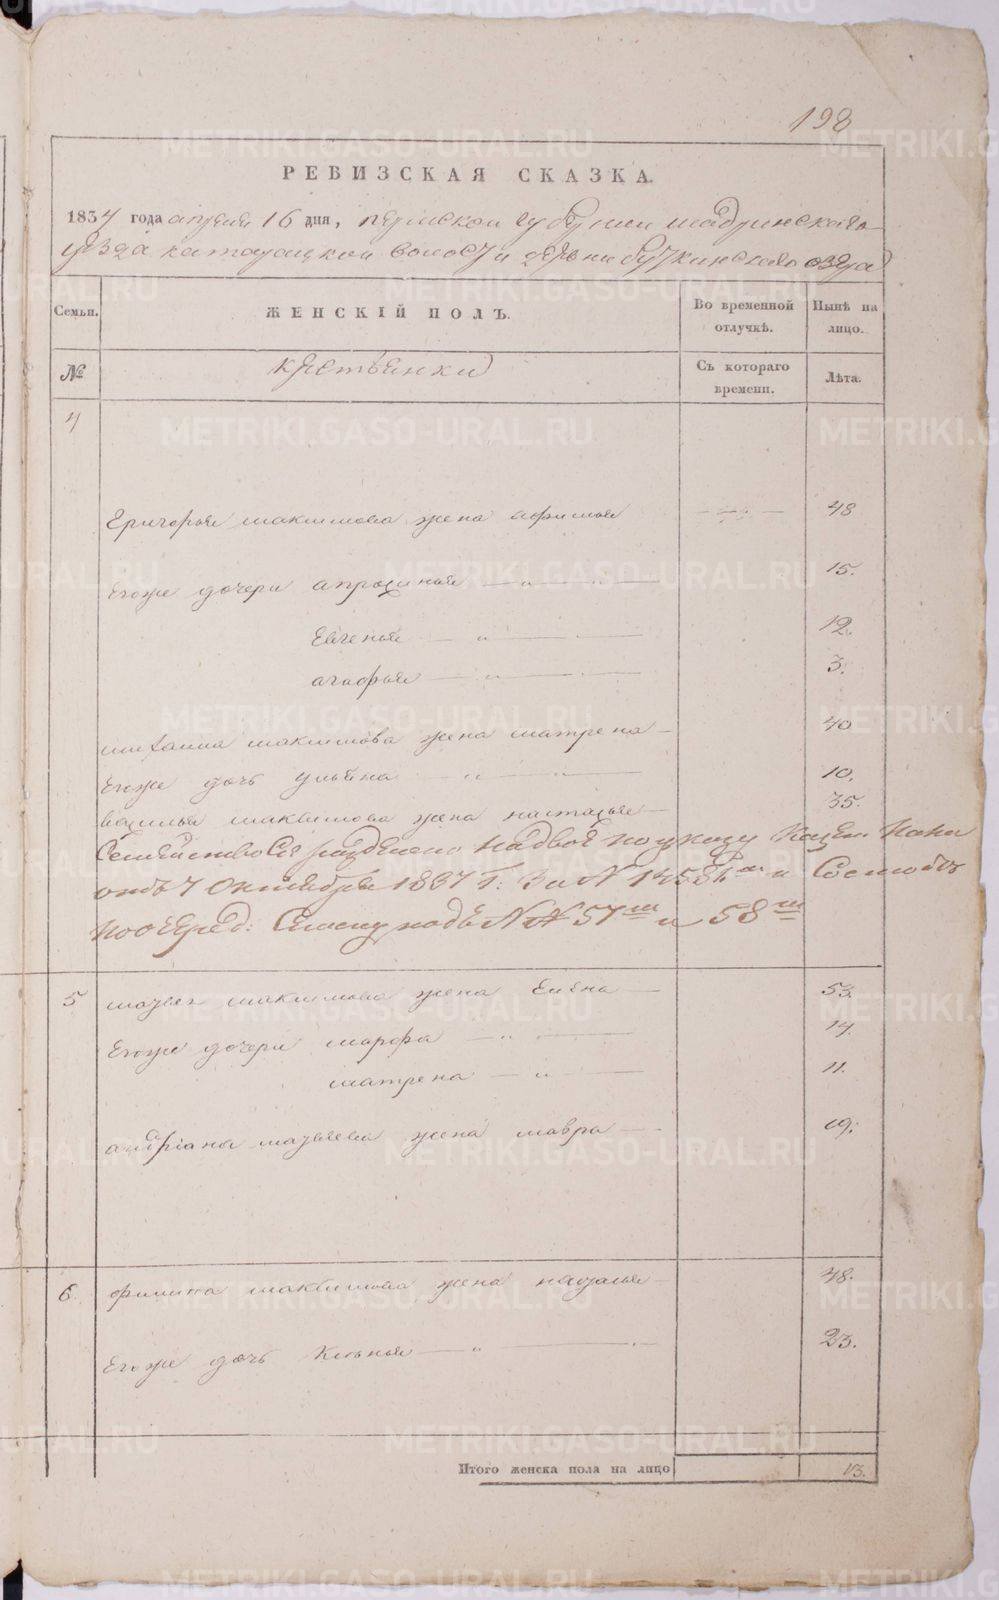 198
РЕВИЗСКАЯ СКАЗКА.
1834 года апреля 16 дня, пермской губернии шадринскаго
уезда катайской волости деревни буткинскаго озера
Семьи.
ЖЕНСКІЙ ПОЛЪ.
Во временной отлучкѣ.
Нынѣ на лицо.
№
крестьянки
Съ котораго времени.
Лѣта.
4
Григорья максимова жена афимья 48
Егоже дочери апросинья 15.
Евгенья 12.
агафья 3.
михаила максимова жена матрена 40
Егоже дочь ульяна 10.
василья максимова жена настасья 35.
Семейство сіе разделено надвое по указу Казен:
отъ 7 Октября 1837 г: за № и Состоитъ
по очеред: Списку подъ №№ 57м и 58м
5 максимова жена Елена 53.
Егоже дочери марфа 14.
матрена 11.
андріана жена мавра 19.
6. филипа максимова жена наталья 48.
Егоже дочь 23.
Итого женска пола на лицо 13.
METRIKI.GASO-URAL.RU